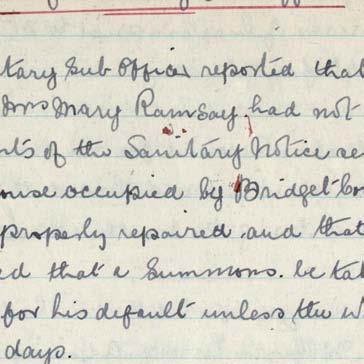 tary Sub Officer reported that
Mrs Mary Ramsay had not
nts of the Sanitary Notice se
ouse occupied by Bridget Co
properly repaired and that
ed that a Summons. be tak
for his default unless the w
days.